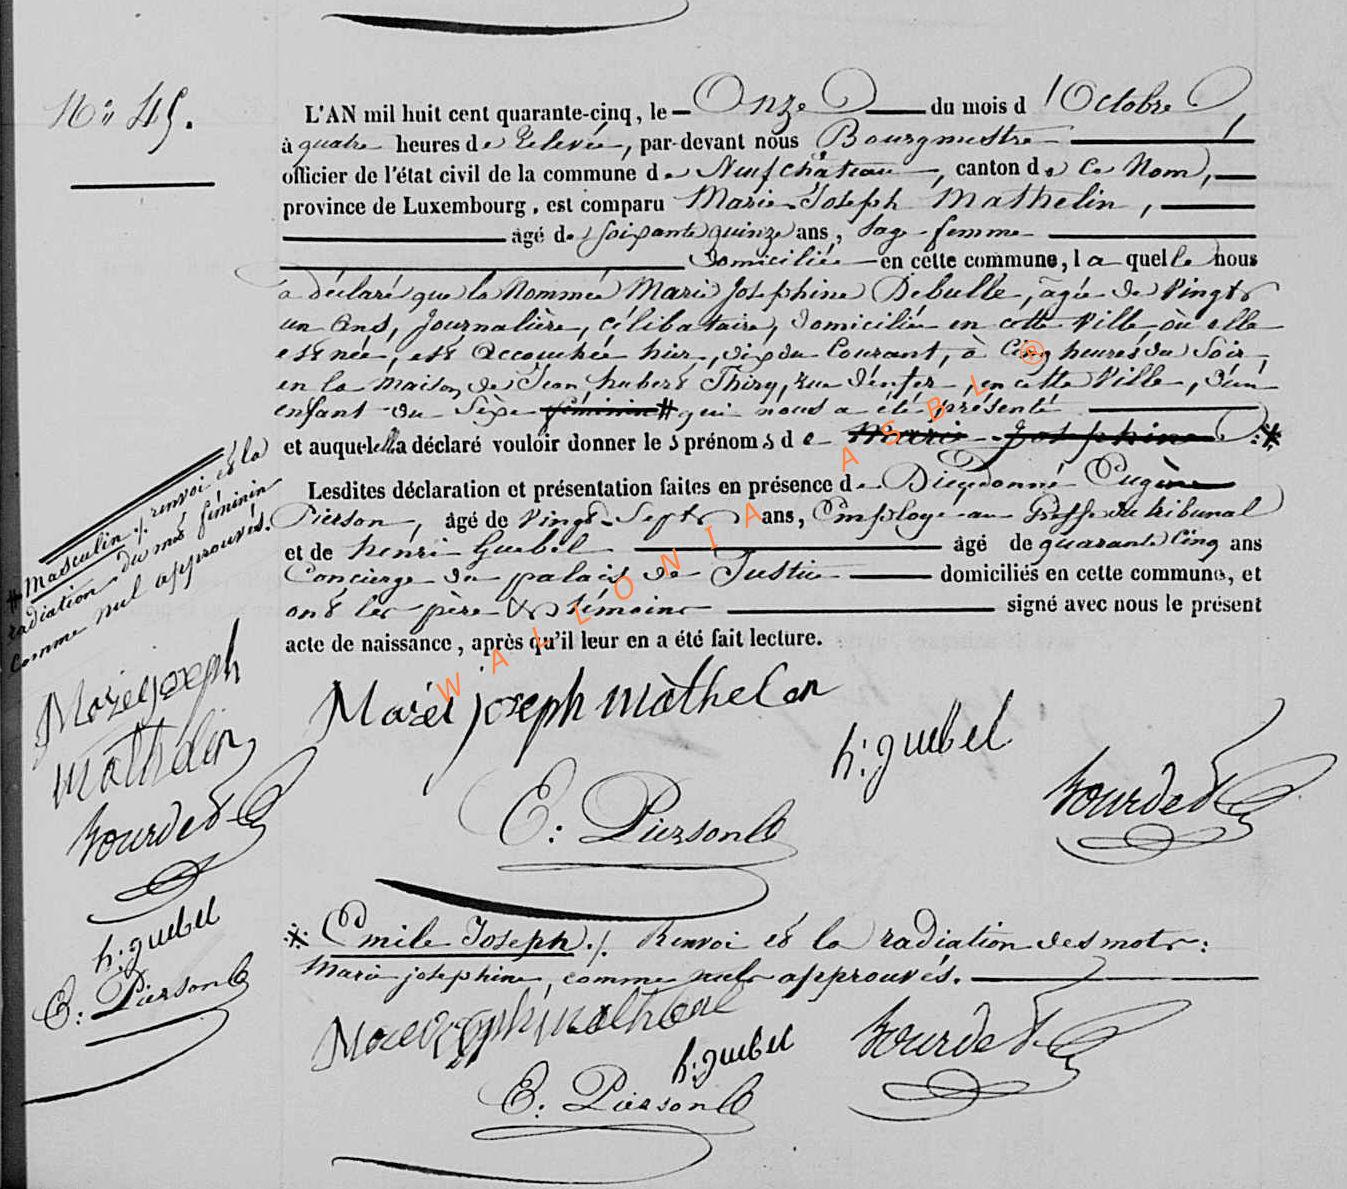 N° 45.
L'AN mil huit cent quarante-cinq, le Onze du mois d'Octobre,
à quatre heures de Relevée, par-devant nous Bourgmestre
officier de l'état civil de la commune de Neufchâteau, canton de Ce Nom,
province de Luxembourg, est comparu Marie-Joseph Mathelin,
âgé de soixante quinze ans, Sage-femme
Domiciliée en cette commune, laquelle nous
a déclaré que la Nommée Marie Josephine Debulle, âgée de Vingt
un Ans, Journalière, célibataire, domiciliée en cette Ville où elle
est née, est Accouchée hier, dix du Courant, à Cinq heures du Soir,
en la Maison de Jean hubert Thiry, rue d'enfer, en cette Ville, d'un
enfant du Sèxe féminin # qui nous a été présenté
et auquel Ella déclaré vouloir donner les prénoms de Marie Josephine :#
Lesdites déclaration et présentation faites en présence de Dieudonné Eugène
Pierson, âgé de Vingt-Sept ans, Employé au Greffe du tribunal
et de henri Guebel âgé de quarante Cinq ans
Concierge du palais de Justice domiciliés en cette commune, et
ont les père & témoins signé avec nous le présent
acte de naissance, après qu'il leur en a été fait lecture.
# Masculin ./. renvoi et la
radiation du mot féminin
comme nul approuvés.
Marie joseph mathelin
h: guebel
E: Pierson
Marie joseph
mathelin
h: guebel
E: Pierson
:#: Emile Joseph ./. Renvoi et la radiation des mots:
Marie josephine, comme nuls approuvés.
h: guebel
E: Pierson
WALLONIA ASBL ®